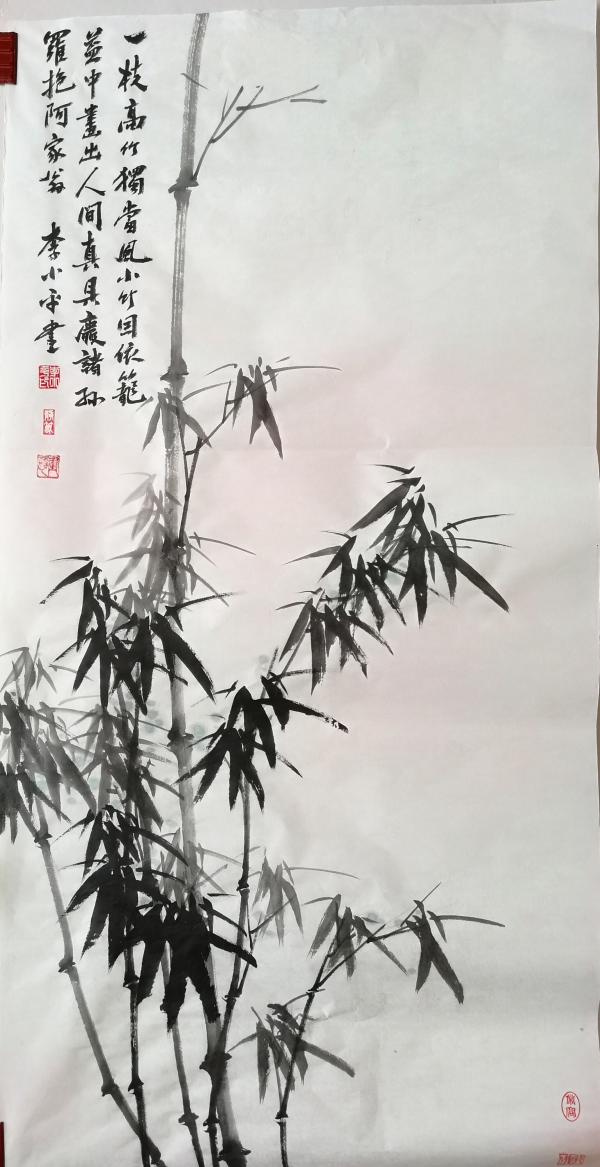 一枝高竹獨當風小竹因依籠
蓋中畫出人間真具慶諸孫
羅抱阿家翁 李小平畫